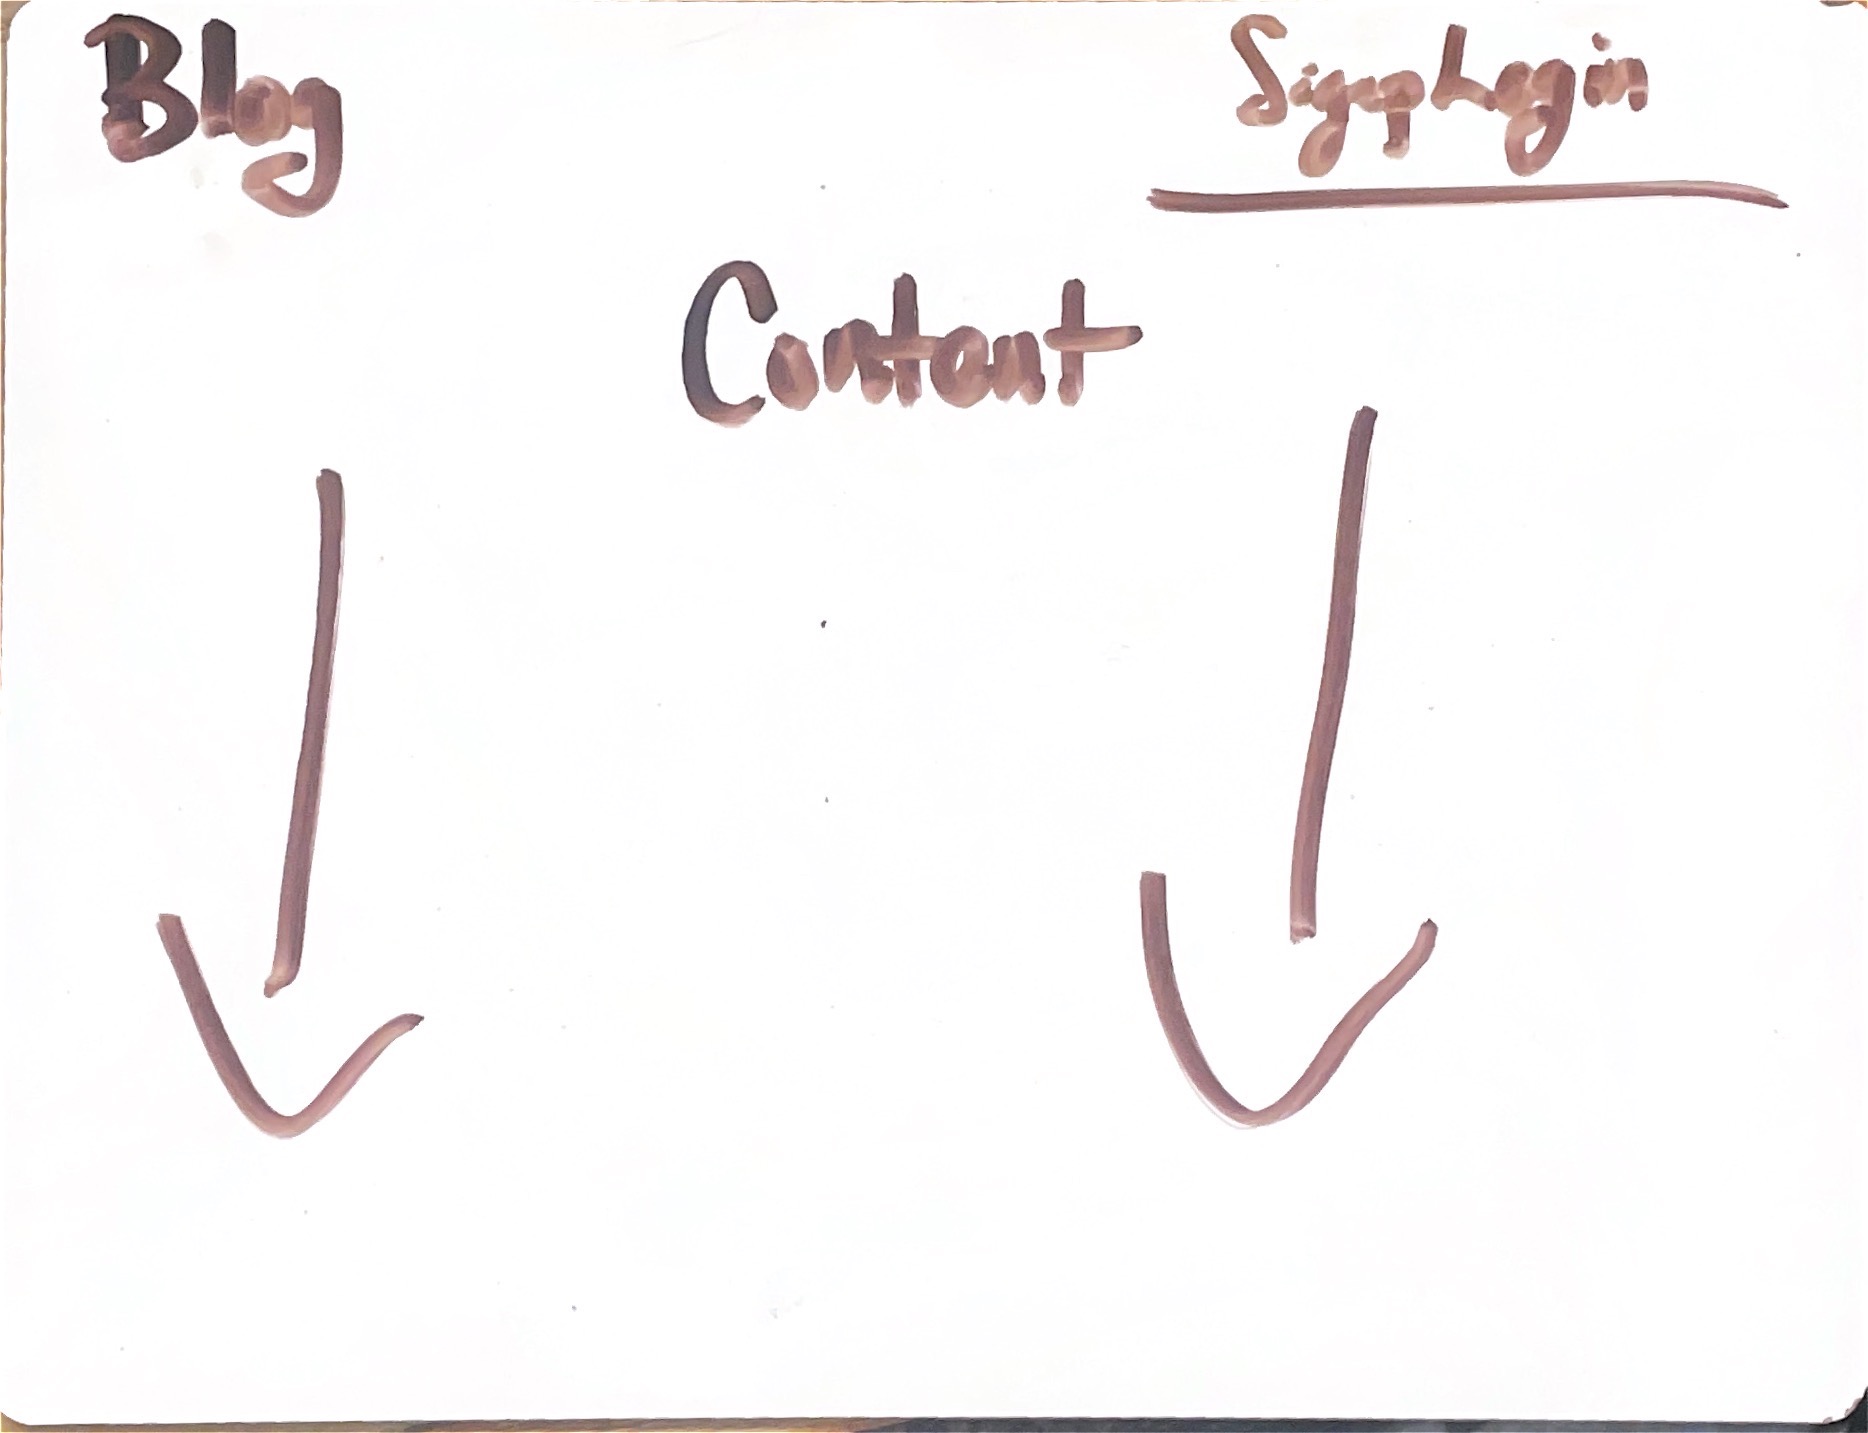 Blog
Signp Login
Content